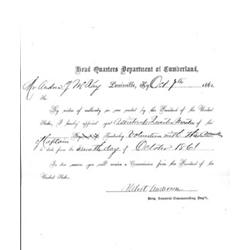 Head Quarters Department of Cumberland,
Louisville, Ky Oct 7th 186
By virtue of authority in me vested by the President of the United
States, I hereby appoint you Assistant
Captain Kentucky Volunteers with the
to date from the seventh day of October 1861
In due season you will receive a Commission from the President of the
United States.
Robert Anderson
Brig. General Commanding Dep't.